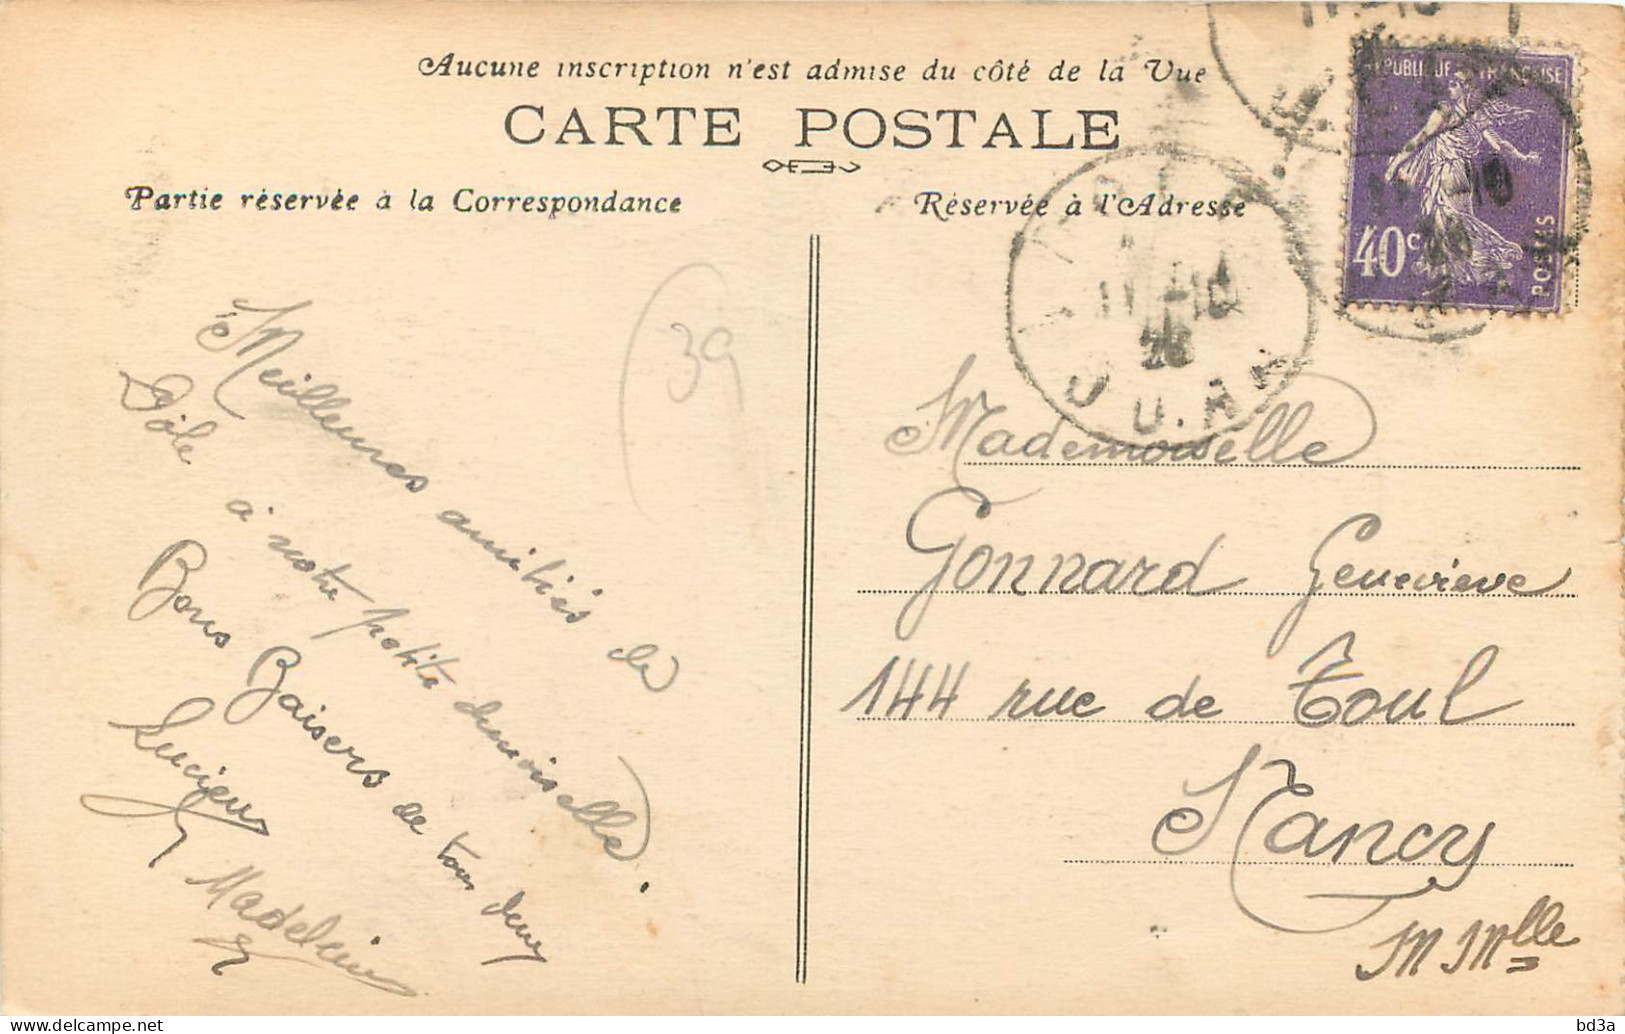 Aucune inscription n'est admise du côté de la Vue
CARTE POSTALE
Partie réservée à la Correspondance
Réservée à l'Adresse
REPUBLIQUE FRANÇAISE
40c
POSTES
11 -10
26
JURA
39
Meilleures amitiés de
Dôle à notre petite demoiselle.
Bons Baisers de tous deux
Lucien
Madeleine
Mademoiselle
Gonnard Genevieve
144 rue de Toul
Nancy
M Mlle
bd3a